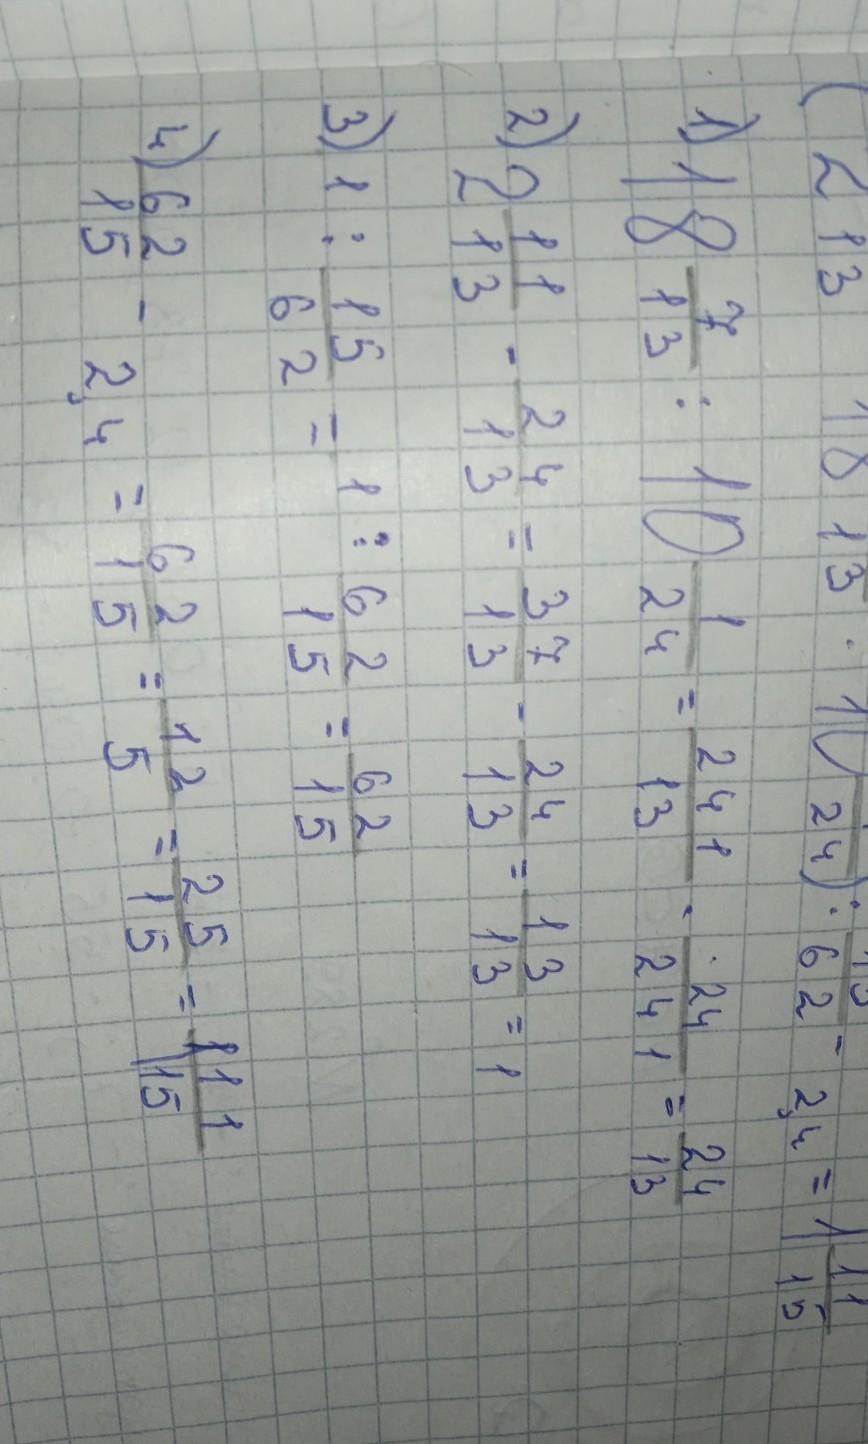 (2 13 18 13 : 10 24) : 15/62 - 2,4 = 1 11/15
1) 18 7/13 : 10 1/24 = 241/13 · 24/241 = 24/13
2) 2 11/13 - 24/13 = 37/13 - 24/13 = 13/13 = 1
3) 1 : 15/62 = 1 : 62/15 = 62/15
4) 62/15 - 2,4 = 62/15 = 12/5 = 25/15 = 1 11/15